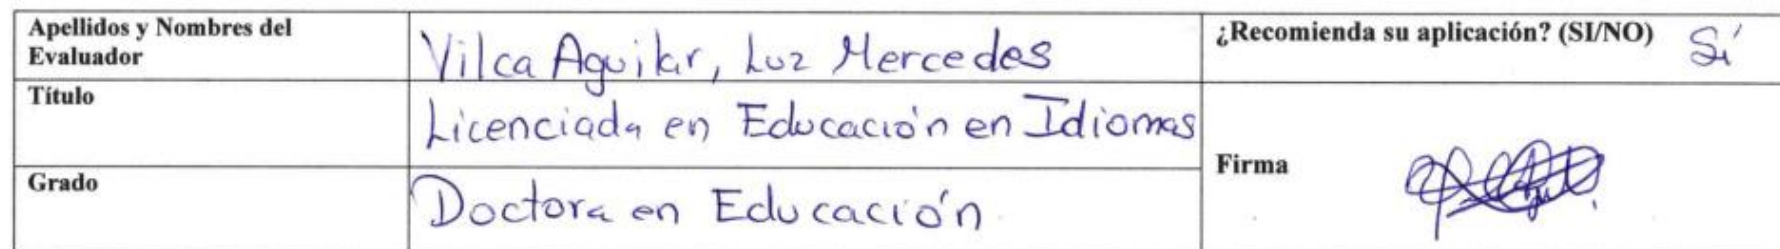 Apellidos y Nombres del
Evaluador
Vilca Aguilar, Luz Mercedes
¿Recomienda su aplicación? (SI/NO) Sí
Título
Licenciada en Educación en Idiomas
Grado
Doctora en Educación
Firma